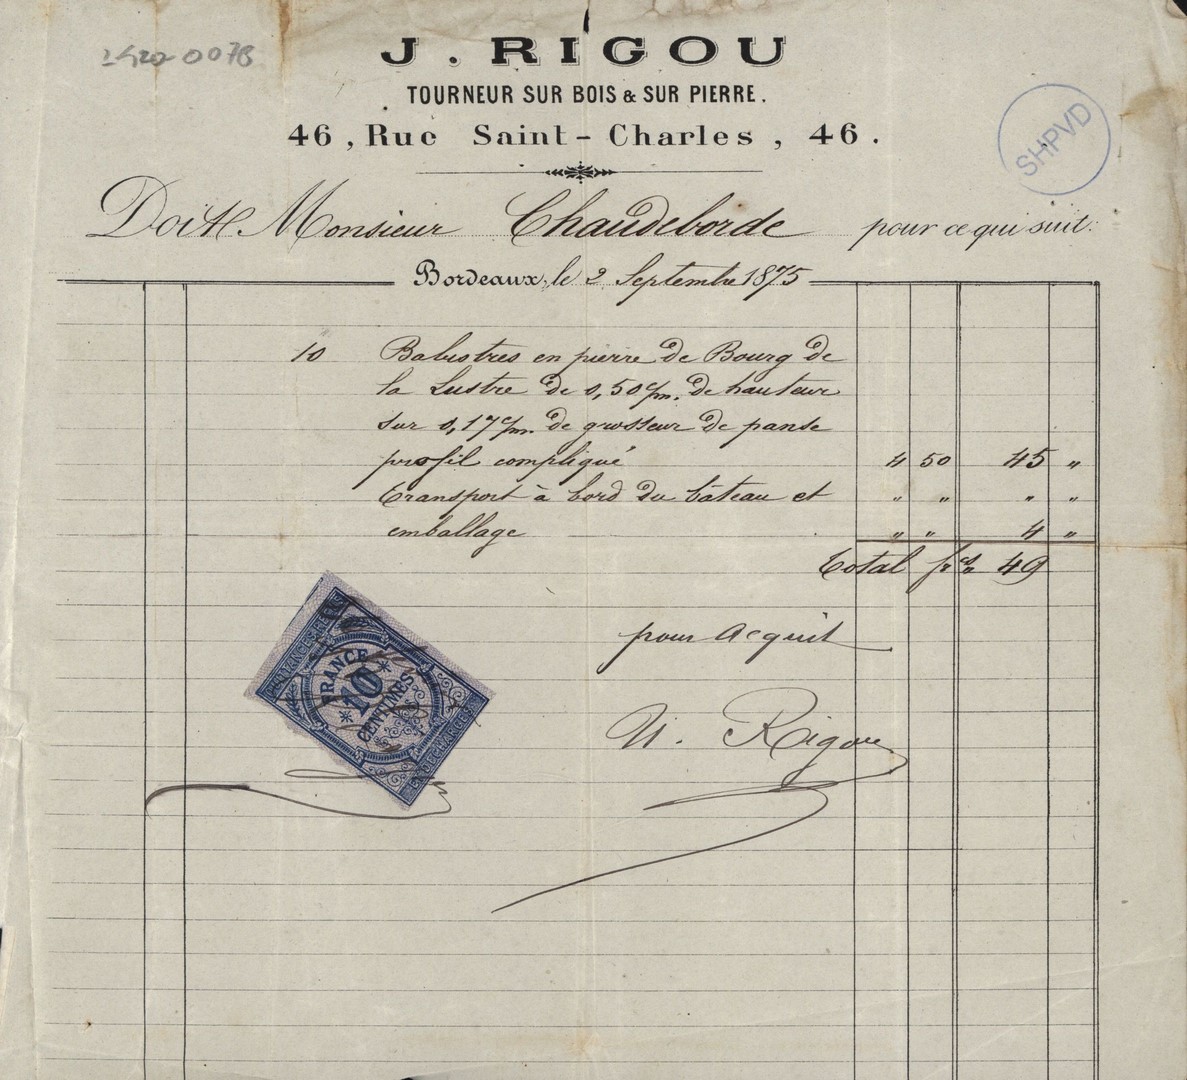 0078
J. RIGOU
TOURNEUR SUR BOIS & SUR PIERRE.
46, Rue Saint-Charles, 46.
SHPVD
Doit Monsieur Chaudeborde pour ce qui suit:
Bordeaux, le 2 Septembre 1875
10 Balustres en pierre de Bourg de
la Lustre de 0,50 c/m. de hauteur
sur 0,17 c/m. de grosseur de panse
profil compliqué 4 50 45 "
transport à bord du bâteau et " " " "
emballage " " 4 "
total frcs 49
pour Acquit
Rigou
QUITTANCES REÇUS
FRANCE
10
CENTIMES
ET DECHARGES